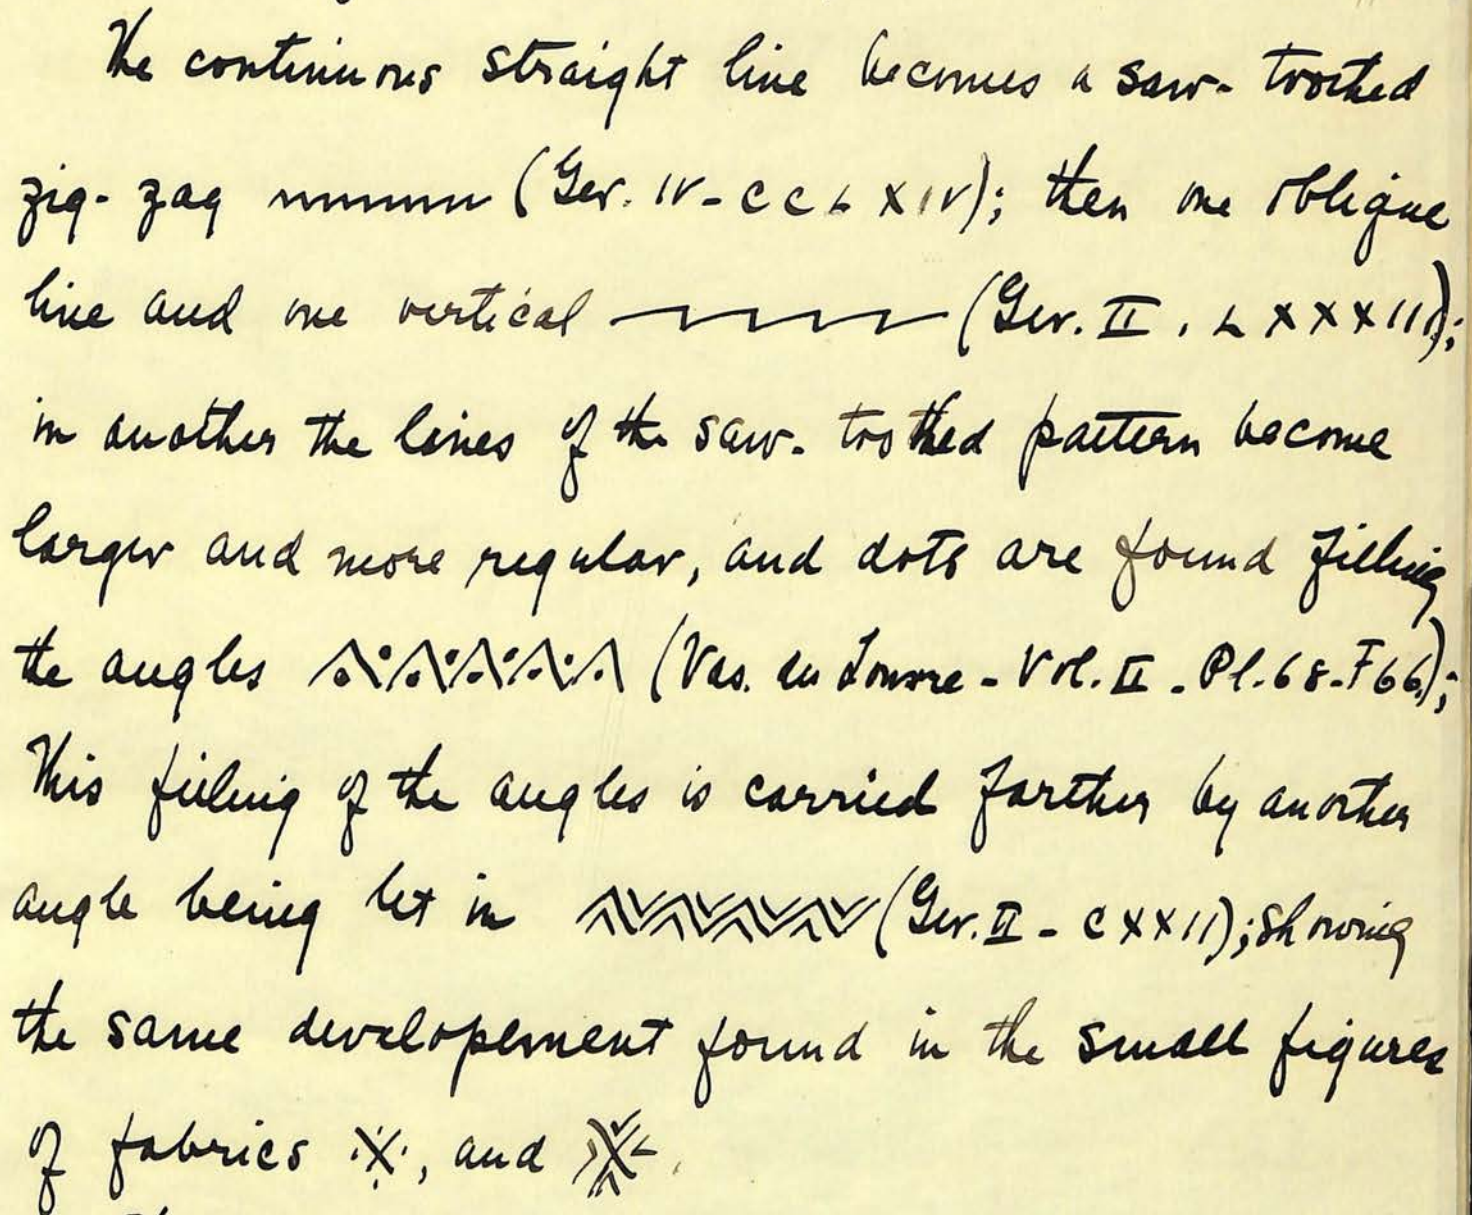 The continuous straight line becomes a saw-toothed
zig-zag (Ger. IV - CCLXIV); then one oblique
line and one vertical (Ger. II. LXXXIII);
in another the lines of the saw-toothed pattern become
larger and more regular, and dots are found filling
the angles (Vas. du Louvre - Vol. II - Pl. 68 - F66);
This filling of the angles is carried farther by another
angle being let in (Ger. II - CXXII); showing
the same developement found in the small figures
of fabrics , and .